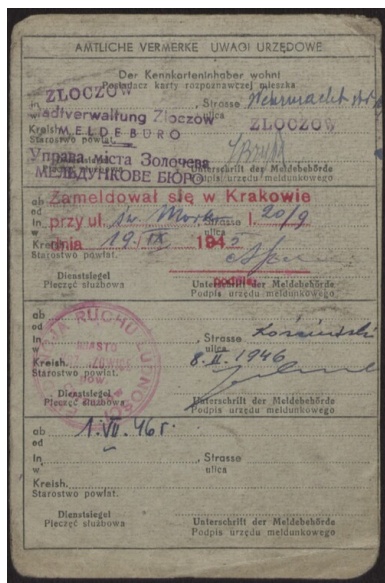 AMTLICHE VERMERKE UWAGI URZĘDOWE
Der Kennkarteninhaber wohnt
Posiadacz karty rozpoznawczej mieszka
ZLOCZOW
in
w
, Strasse Wehrmacht str.
Stadtverwaltung Zloczów
ZLOCZOW
Kreish.
MELDEBÜRO
Starostwo powiat.
Управа міста Золочева
МЕЛЬДУНКОВЕ БЮРО
Unterschrift der Meldebehörde
Podpis urzędu meldunkowego
ab
od
Zameldował się w Krakowie
in
w
przy ul. św. Marka l. 20/9
, Strasse
ulica
Kreish.
dnia 19. IX 194
Starostwo powiat.
Dienstsiegel
Pieczęć służbowa
podpis
Unterschrift der Meldebehörde
Podpis urzędu meldunkowego
ab
od
RUCHU LUDNOŚCI
MIASTO
in
w
, Strasse
ulica
Kreish.
8. II. 1946
Starostwo powiat.
Dienstsiegel
Pieczęć służbowa
Unterschrift der Meldebehörde
Podpis urzędu meldunkowego
ab
od
1. VII. 46 r.
in
w
, Strasse
ulica
Kreish.
Starostwo powiat.
Dienstsiegel
Pieczęć służbowa
Unterschrift der Meldebehörde
Podpis urzędu meldunkowego